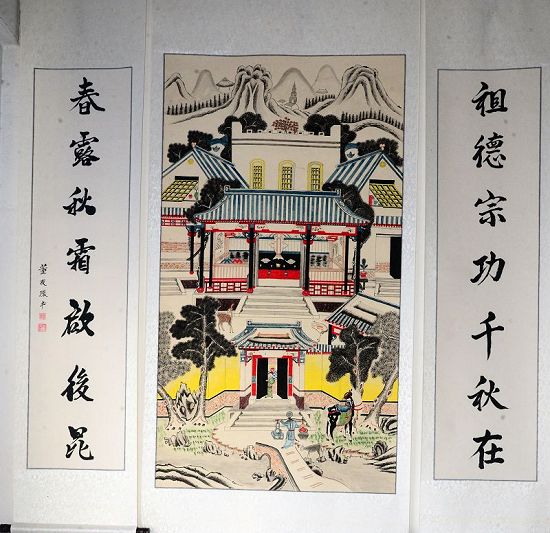 祖德宗功千秋在
春露秋霜啟後昆